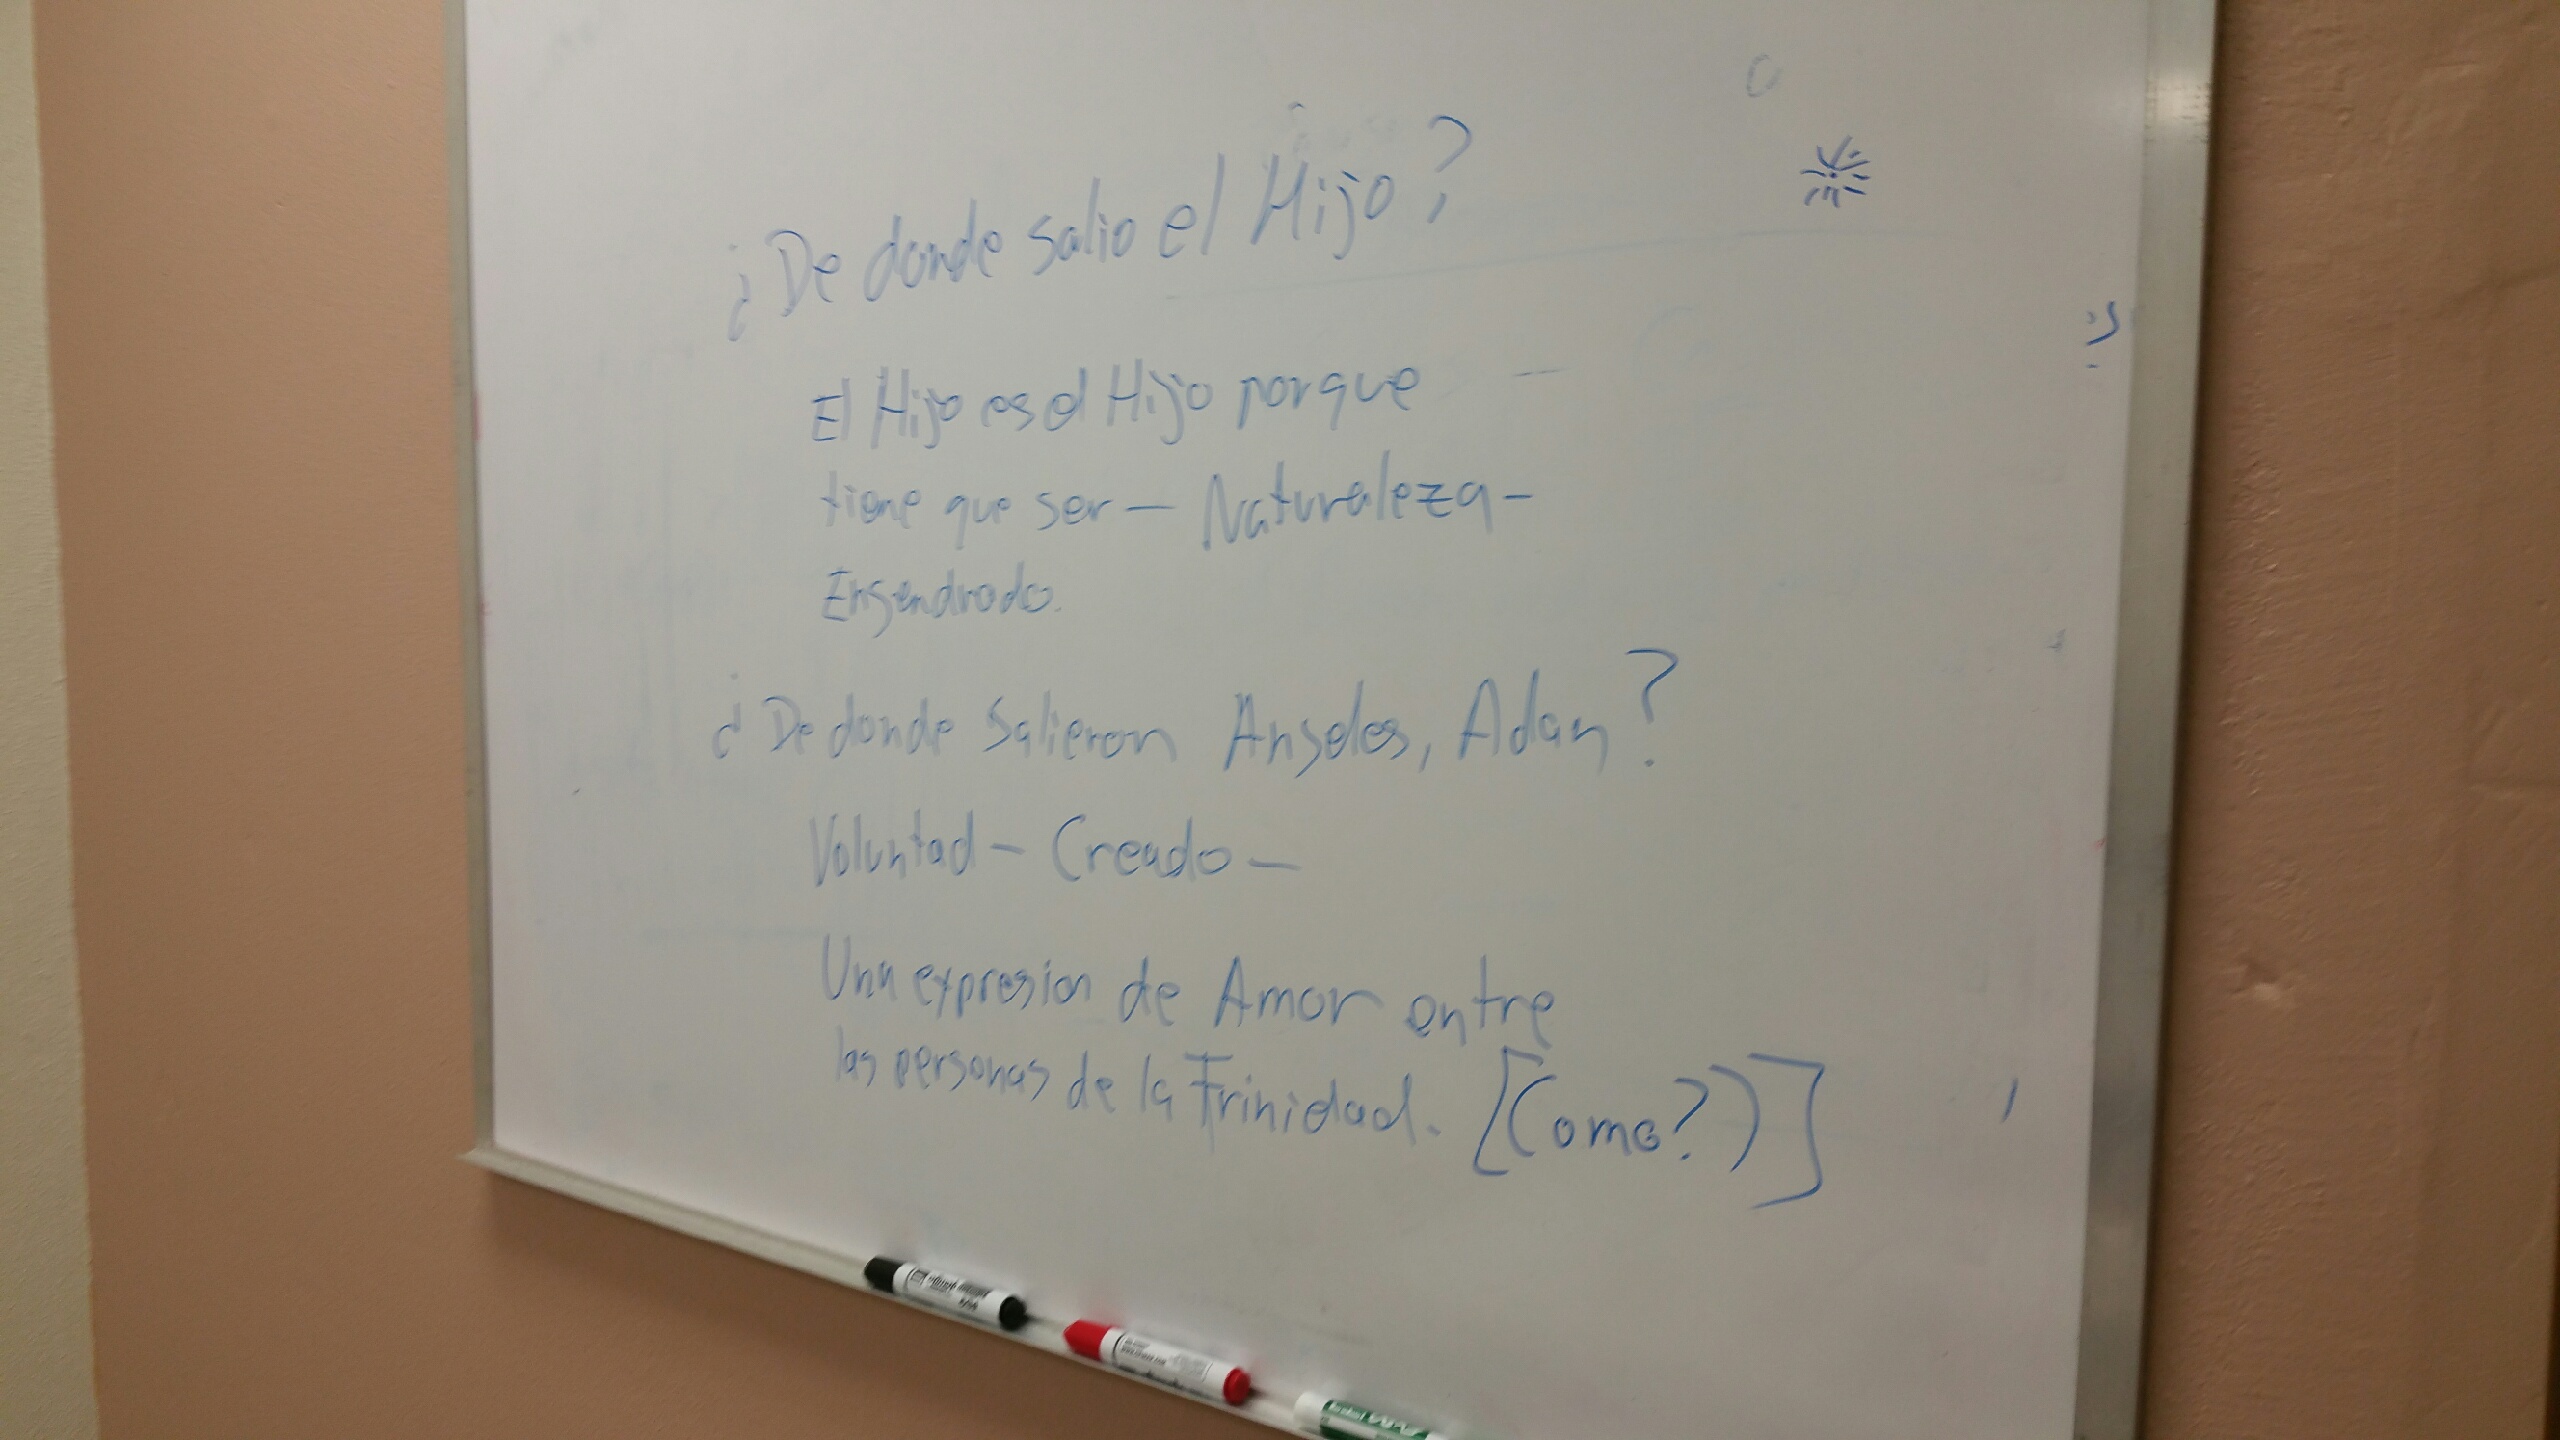 ¿De donde salio el Hijo?
El Hijo es el Hijo porque
tiene que ser — Naturaleza —
Engendrado.
¿De donde salieron Angeles, Adan?
Voluntad — Creado —
Una expresion de Amor entre
las personas de la Trinidad. [(Como?)]